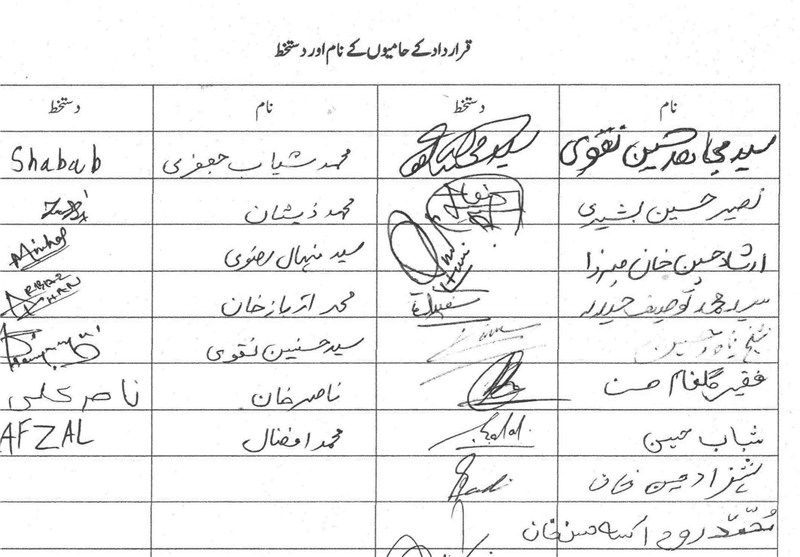 قرارداد کے حامیوں کے نام اور دستخط
نام دستخط نام دستخط
سید مجاہد حسین نقوی محمد شباب جعفری Shabab
نصیر حسین بشیری محمد ذیشان
ارشاد حسین خان میرزا سید منہال رضوی Minhal
سید محمد توصیف حیدر محمد ارباز خان ARBAZ KHAN
حسین سید حسنین نقوی
فقیر گلفام حسن ناصر خان ناصر علی
شباب حسین محمد افضال AFZAL
شہزاد حسین خان Hadi
محمد روح حسن خان